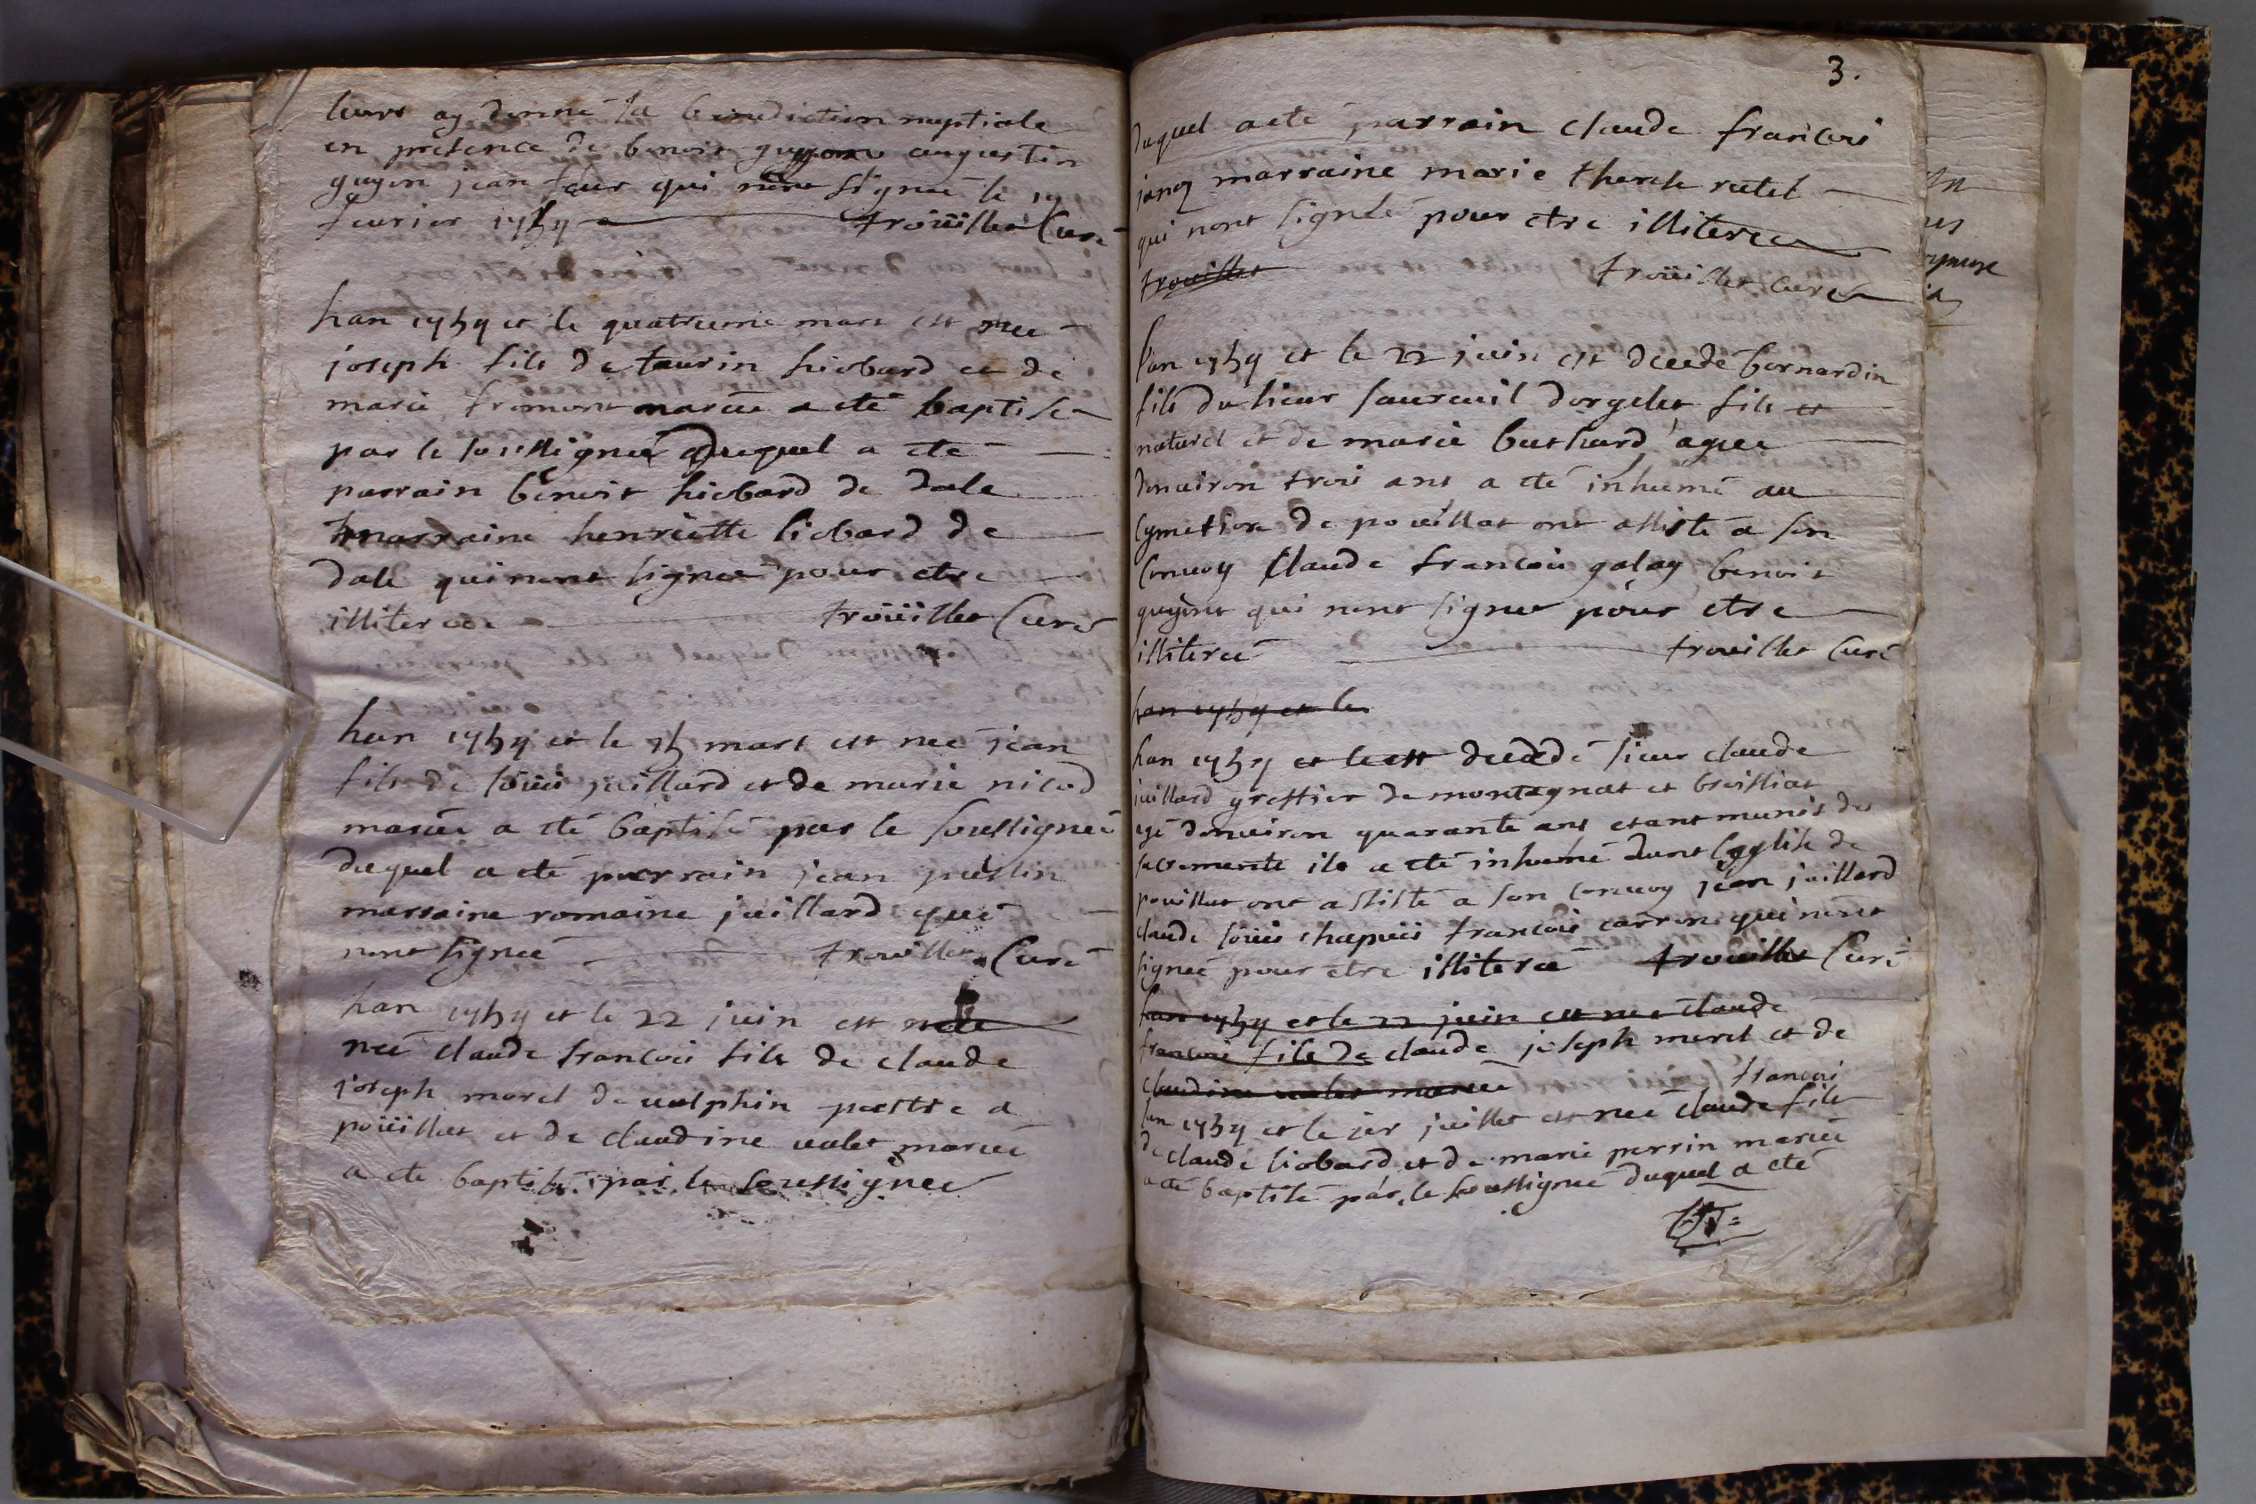 leurs ay donné la benediction nuptiale
en presence de benoit guyonu augustin
guyon jean qui nont signeé le 19
fevrier 1759 troüillet Curé
lan 1759 et le quatrieme mars est neé
joseph fils de taurin liobard et de
marie fromont mariée a eté baptisé
par le soussigneé duquel a eté
parrain benoit liobard de dale
marraine henriette liobard de
dale qui nont signeé pour etre
illitereé troüillet Curé
lan 1759 et le 15 mars est neé jean
fils de loüis juillard et de marie nicod
mariée a eté baptisé par le soussigneé
duquel a eté parrain jean puslin
marraine romaine juillard qui
nont signeé trouillet Curé
lan 1759 et le 22 juin est
neé claude francois fils de claude
joseph morel de valphin pastre a
poüillat et de claudine valet mariée
a eté baptisé par le soussigneé
3.
duquel a eté parrain claude francois
janoy marraine marie therese
qui nont signeé pour etre illitereé
trouillet troüillet Curé
lan 1759 et le 22 juin est decedé bernardin
fils du sieur saureuil dorgelet fils et
naturel et de marie buthard ageé
denviron trois ans a eté inhumé au
Cymetiere de poüillat ont assisté a son
Convoy Claude francois galay benoit
guyont qui nont signeé pour etre
illitereé trouillet Curé
lan 1759 et le
lan 1759 et le est decedé sieur claude
juillard greffier de montagnat et broissiat
agé denviron quarante ans etant munis des
sacrements ils a eté inhumé dans leglise de
pouillat ont assisté a son convoy jean juillard
claude loüis chapuis francois carron qui nont
signeé pour etre illitereé trouillet Curé
lan 1759 et le 22 juin est neé claude
francois fils de claude joseph morel et de
claudine valet mariée
francois
lan 1759 et le 1er juillet est neé claude fils
de claude liobard et de marie perrin mariée
a eté baptisé par le soussigneé duquel a eté